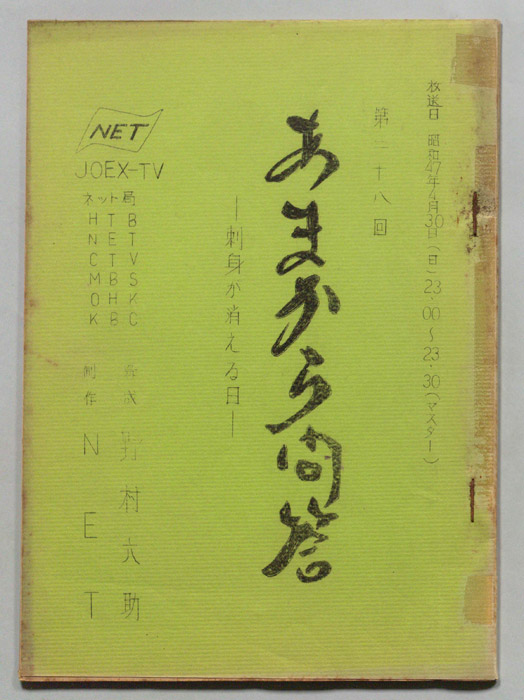 放送日 昭和47年4月30日(日)23.00~23.30(マスター)
第二十八回
あまから問答
―刺身が消える日―
NET
JOEX-TV
ネット局
HTB
NET
CTV
MBS
OHK
KBC
構成 野村六助
制作 NET